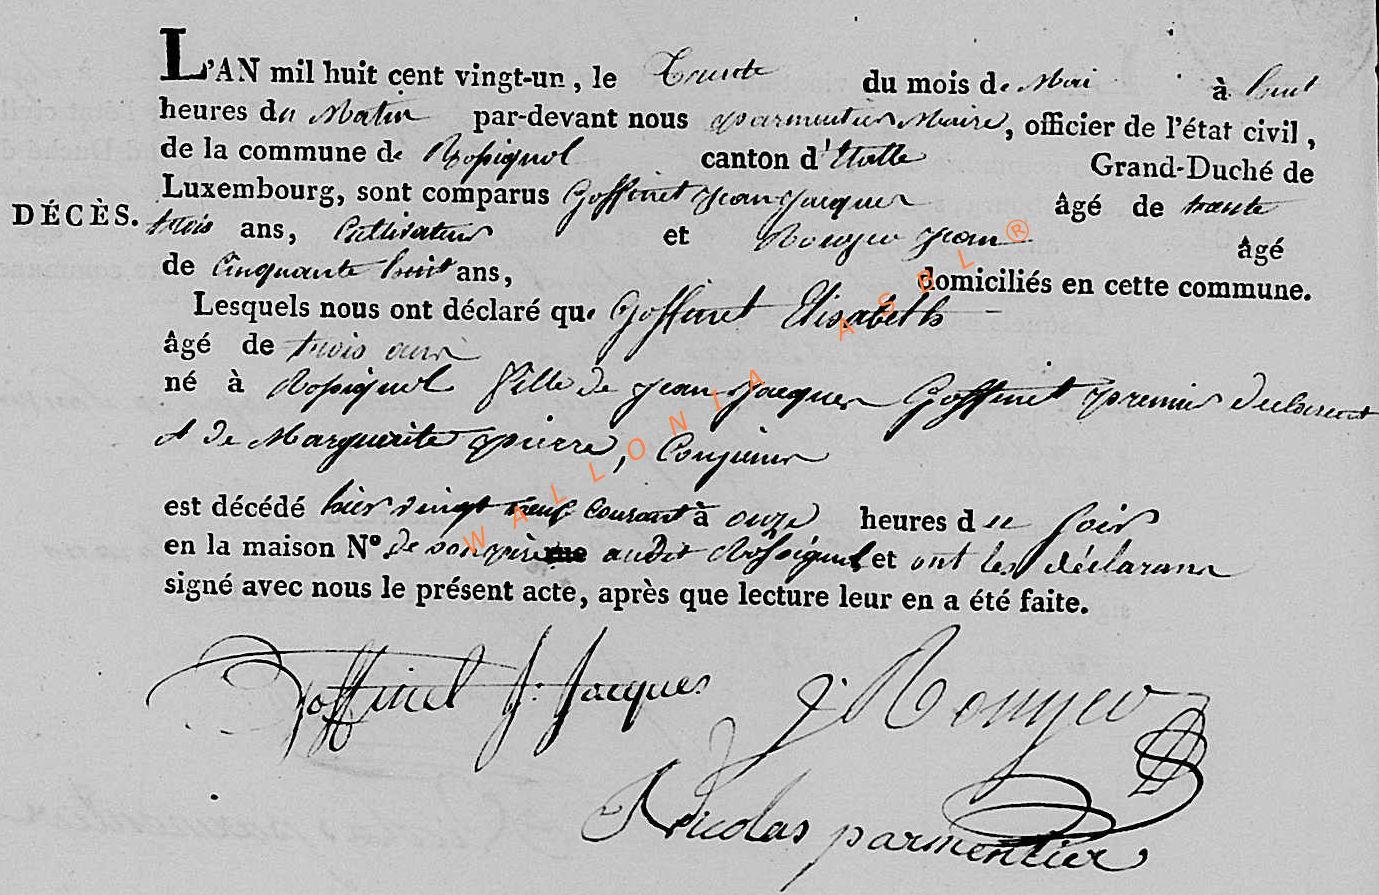 L'AN mil huit cent vingt-un, le Trente du mois de Mai à huit
heures du Matin par-devant nous parmentier Maire, officier de l'état civil,
de la commune de Rossignol canton d'Etalle Grand-Duché de
Luxembourg, sont comparus Goffinet Jean Jacques âgé de trente
DÉCÈS. trois ans, Cultivateur et Rongvo Jean âgé
de Cinquante huit ans, domiciliés en cette commune.
Lesquels nous ont déclaré que Goffinet Elisabeth
âgé de trois ans
né à Rossignol fille de Jean Jacques Goffinet premier declarant
et de Marguerite pierre, Conjoins
est décédé hier vingt neuf courant à onze heures du soir
en la maison Nº de son père rue audit Rossignol et ont les déclarans
signé avec nous le présent acte, après que lecture leur en a été faite.
Goffinet J: Jacques J. Rongvo
Nicolas parmentier
WALLONIA ASBL®